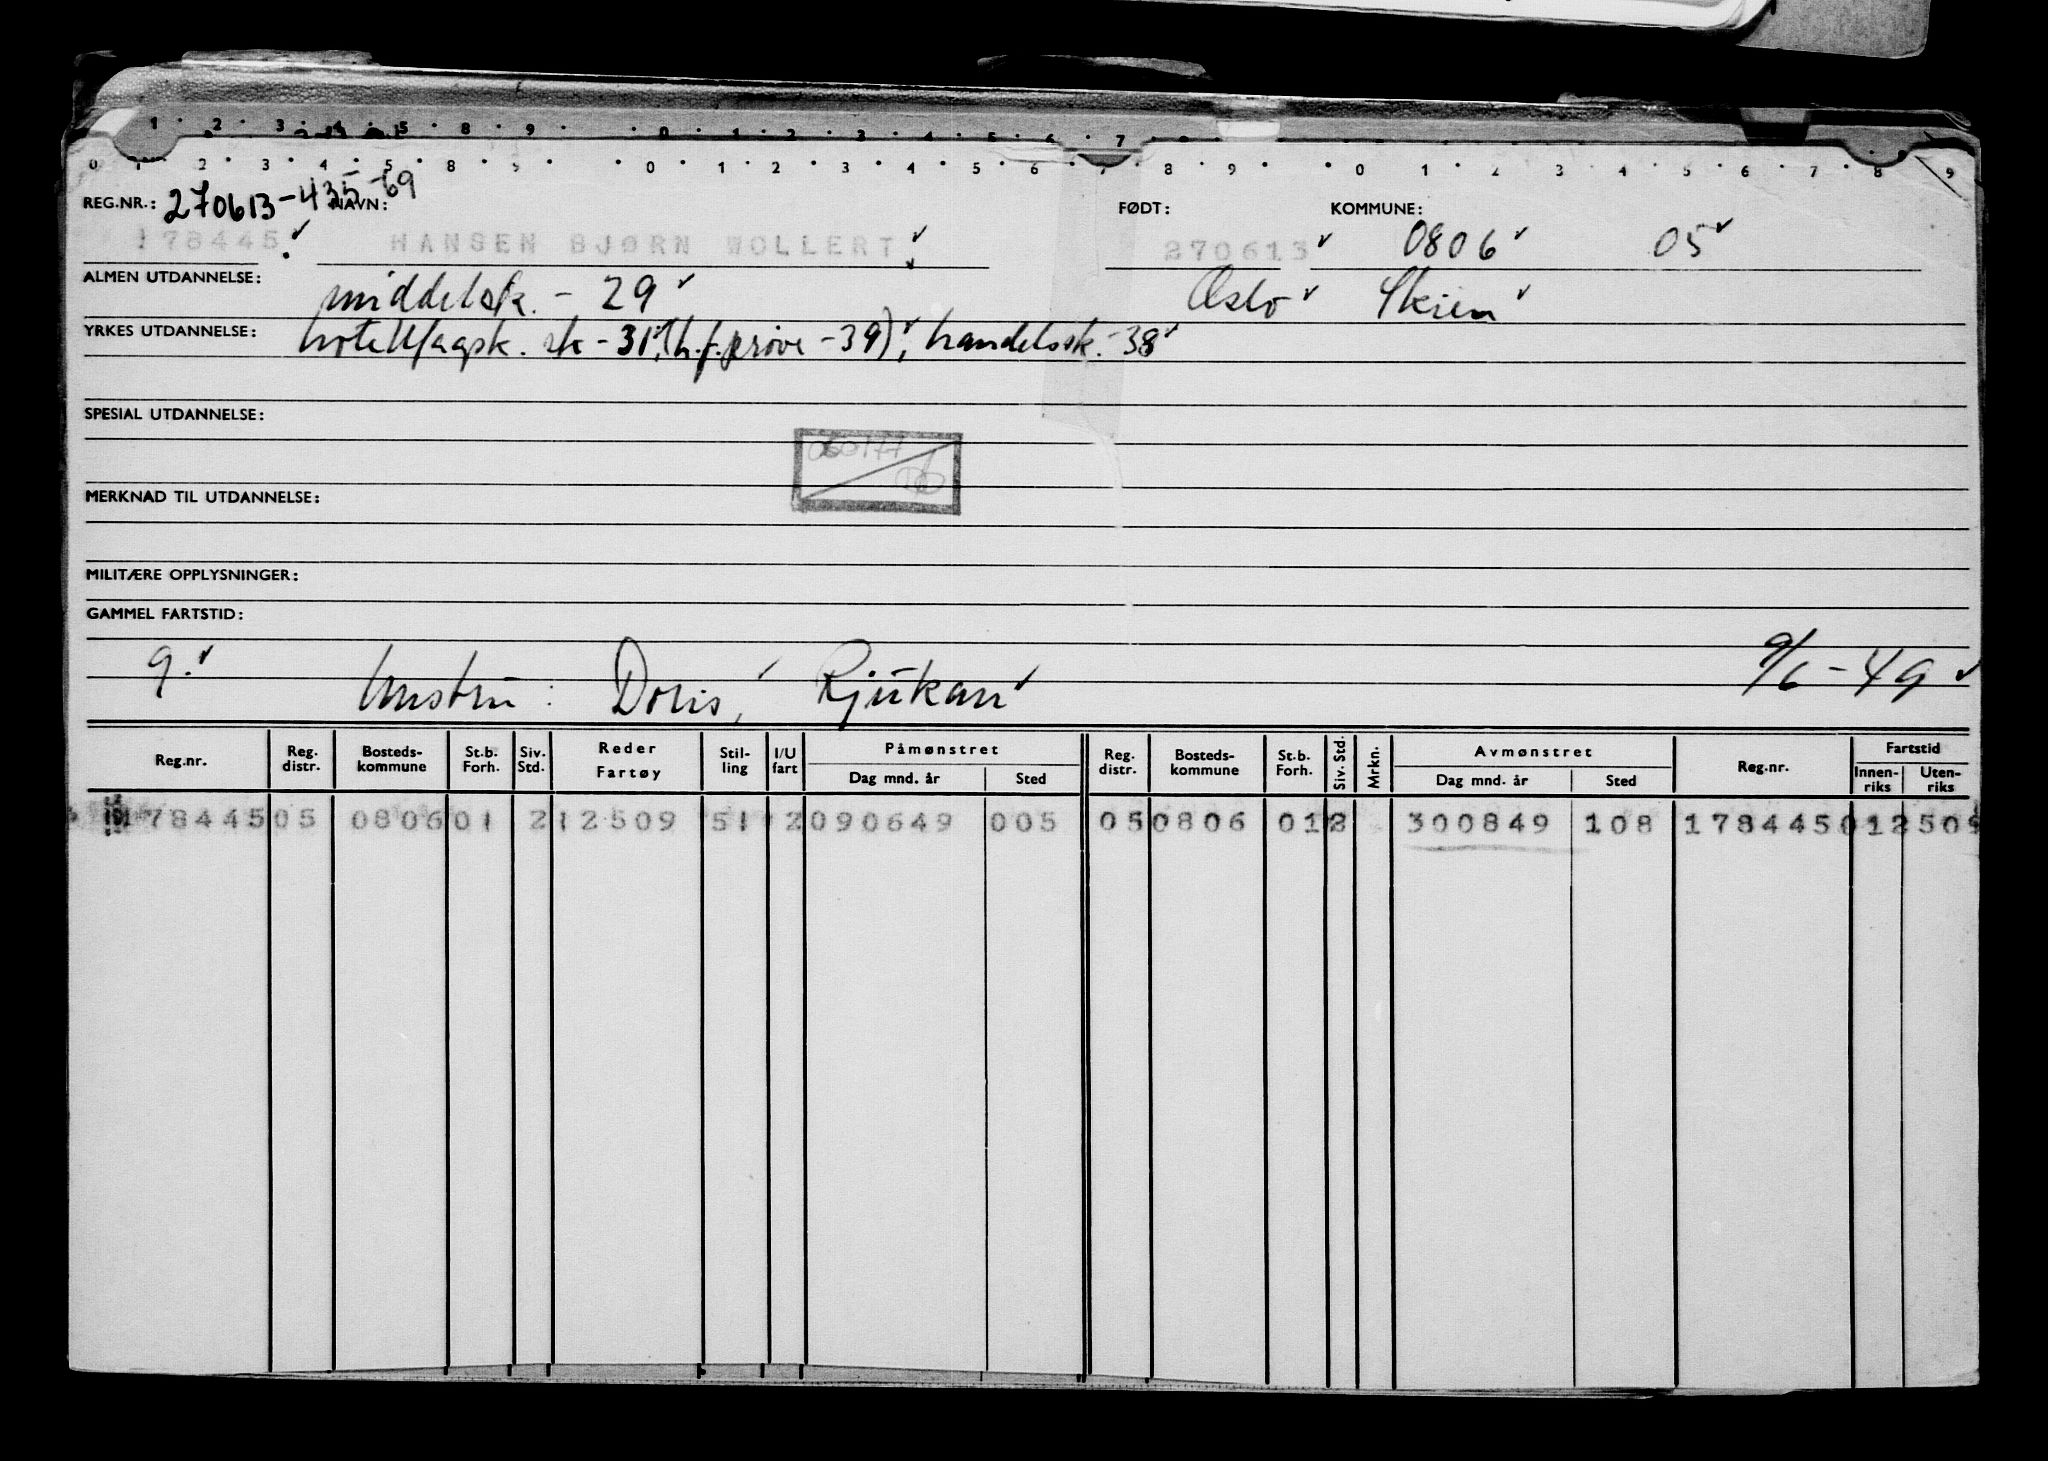 1 2 3 4 5 8 9 0 1 2 3 4 5 6 7 8
0 1 2 3 4 5 8 9 0 1 2 3 4 5 6 7 8 9 0 1 2 3 4 5 6 7 8 9
REG.NR.: 270613-435-69 NAVN: FØDT: KOMMUNE:
178445 HANSEN BJØRN WOLLERT 270613 0806 05
ALMEN UTDANNELSE: middelsk. - 29 Oslo Skien
YRKES UTDANNELSE: hotellfagsk. - 31, (h.f.prøve -39), handelssk. -38
SPESIAL UTDANNELSE:
060177
MERKNAD TIL UTDANNELSE:
MILITÆRE OPPLYSNINGER:
GAMMEL FARTSTID:
g. hustru: Doris, Rjukan 9/6-49
Reg.nr. Reg. distr. Bosteds-kommune St.b. Forh. Siv. Std. Reder Fartøy Stil-ling I/U fart Påmønstret Dag mnd. år Sted Reg. distr. Bosteds-kommune St.b. Forh. Siv. Std. Mrkn. Avmønstret Dag mnd. år Sted Reg.nr. Fartstid Innen-riks Uten-riks
178445 05 0806 01 2 12509 51 2 090649 005 05 0806 01 2 300849 108 178445 012509